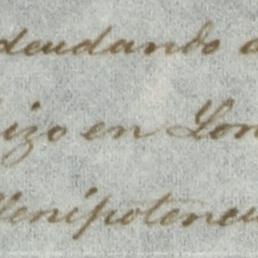 deudando
hizo en Lon
Plenipotencia